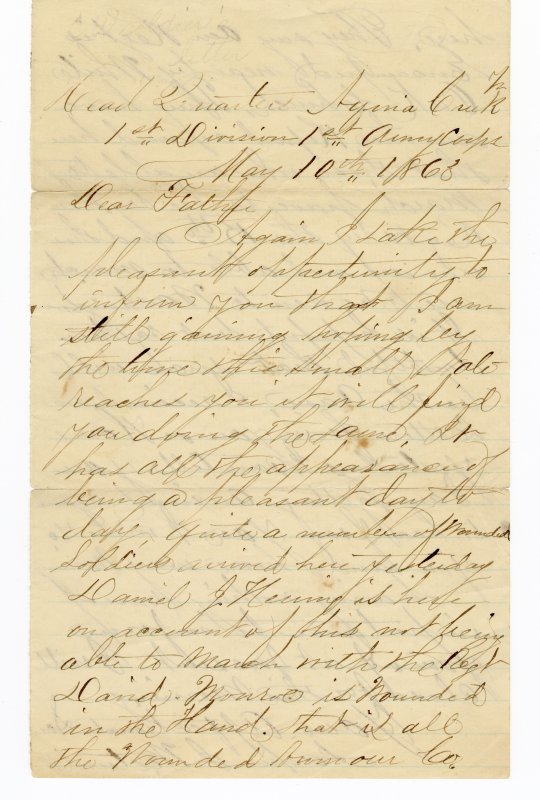 Head Quarters Aquia Creek
1st Division 1st Army Corps
May 10th 1863
Dear Father
Again I take the
pleasant opportunity to
inform you that I am
still gaining hoping by
the time this small Note
reaches you it will find
you doing the same. It
has all the appearance of
being a pleasant day to
day quite a number of Wounded
Soldiers arrived here yesterday
Daniel J. is here
on account of his not being
able to March with the Regt
David. Monroe is Wounded
in the Hand. that is all
the Wounded our Co.